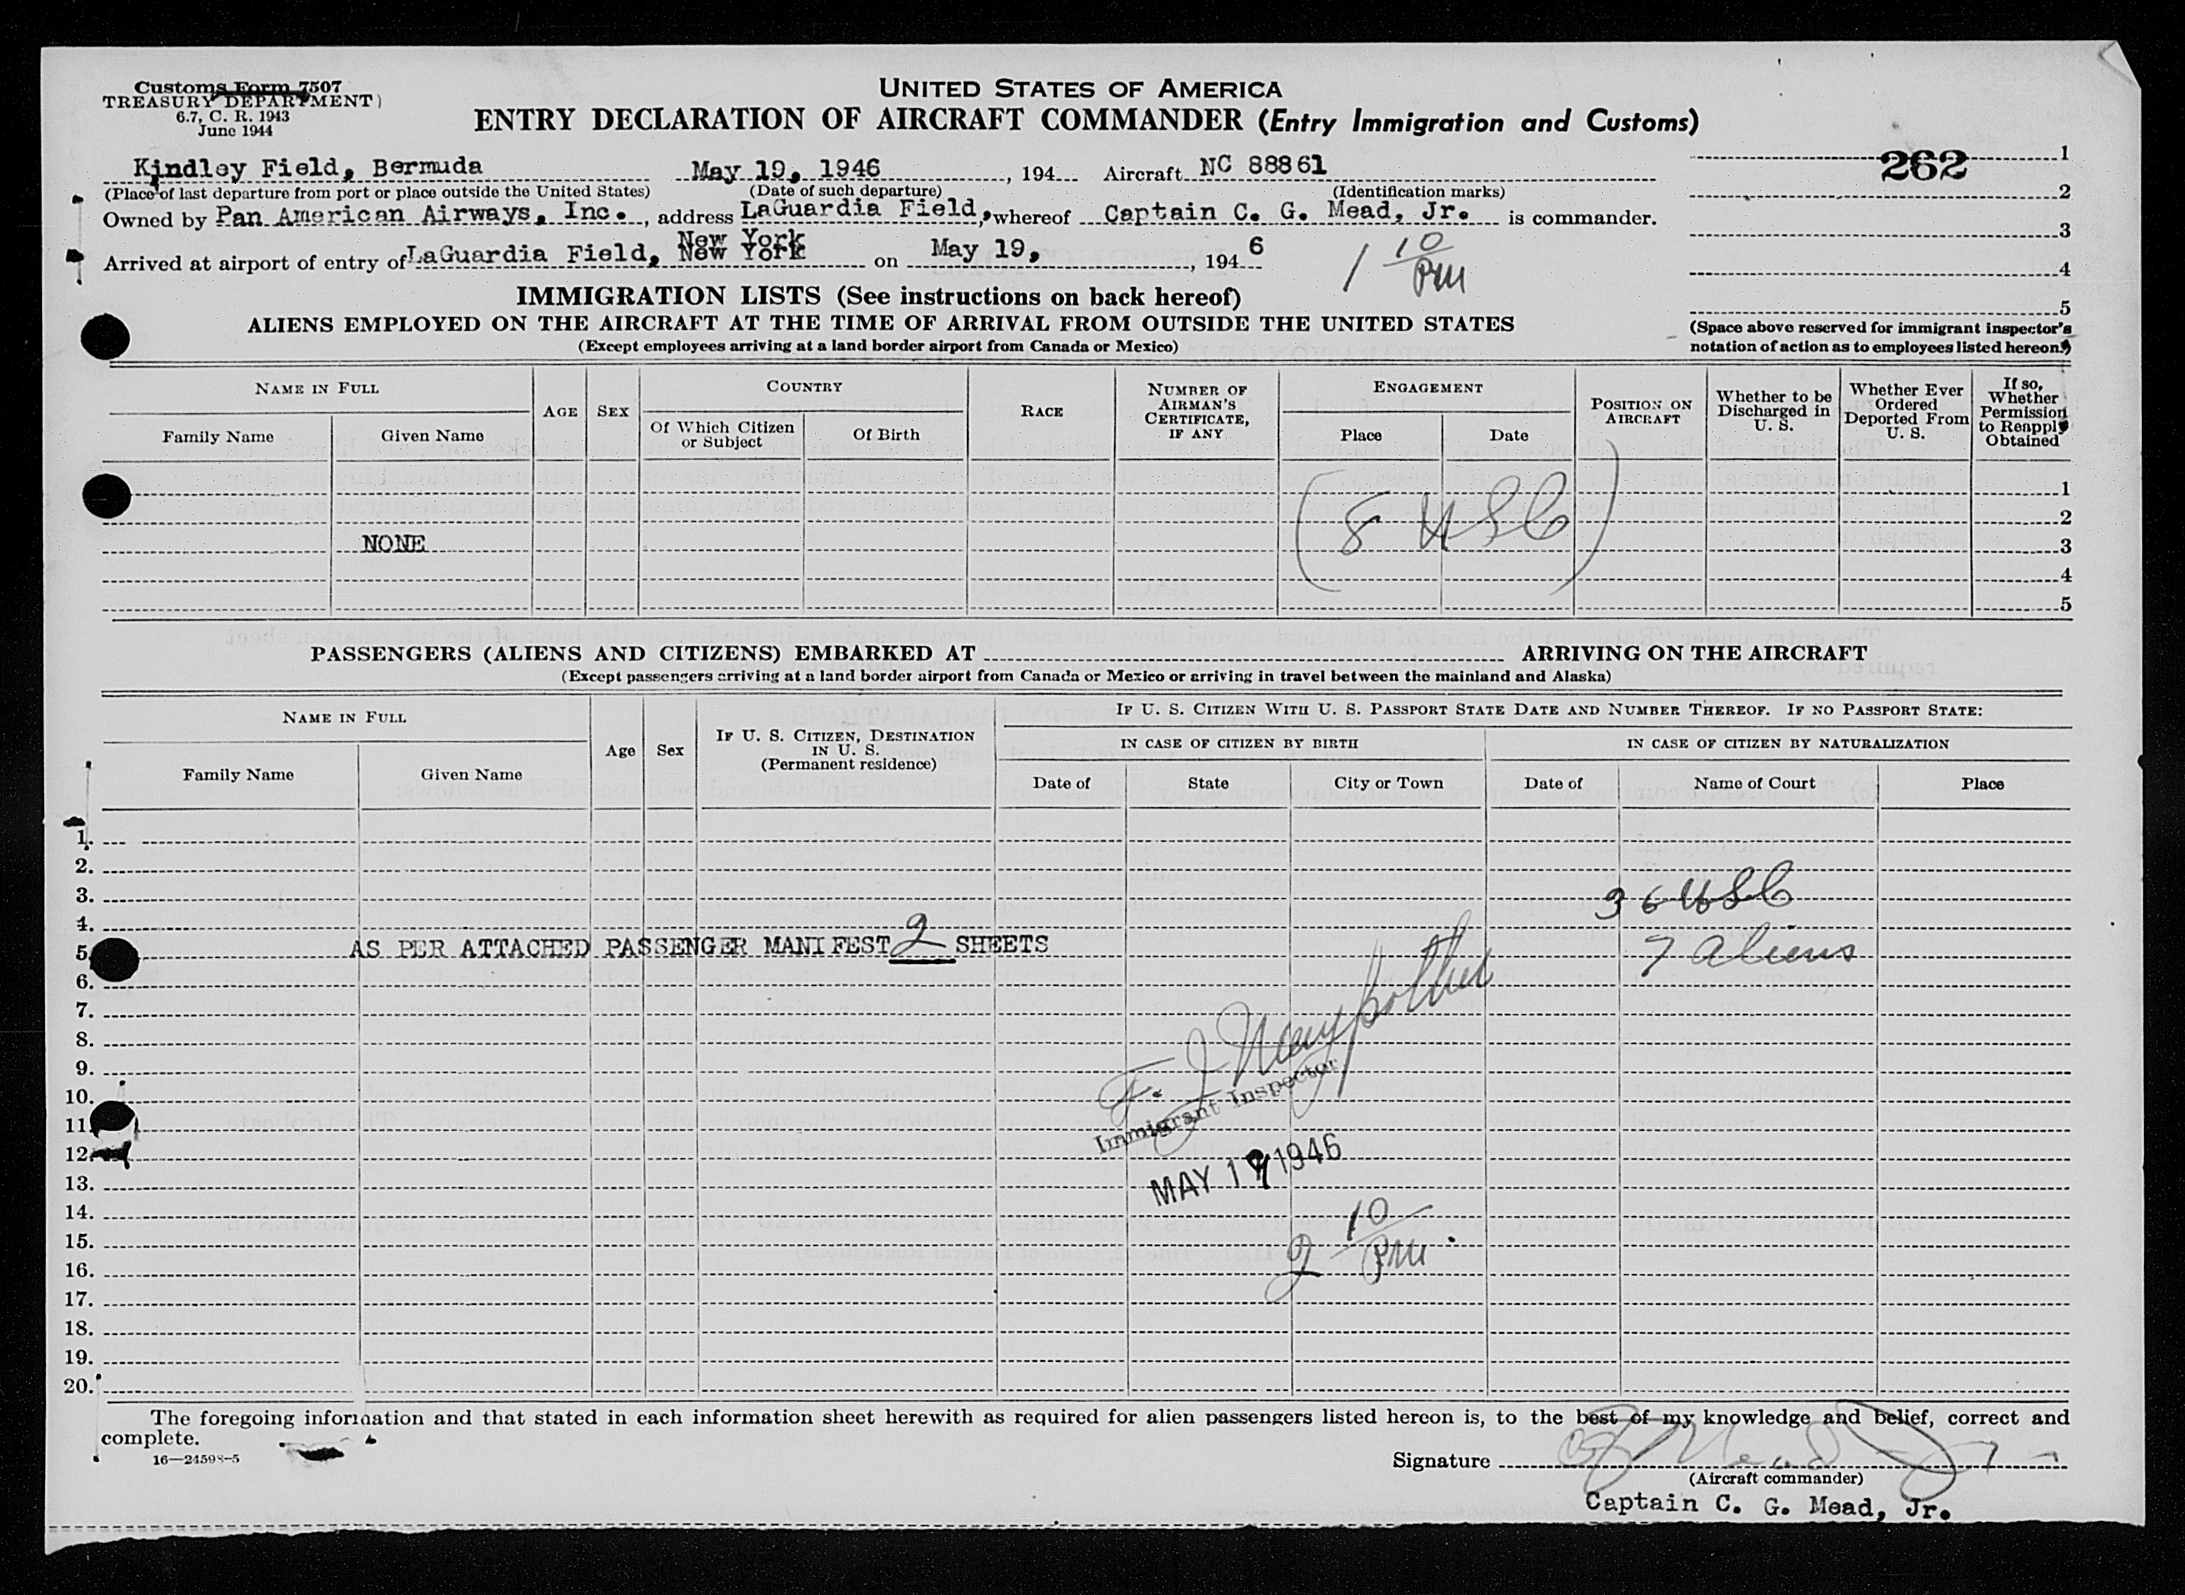 Customs Form 7507
TREASURY DEPARTMENT
6.7, C. R. 1943
June 1944
UNITED STATES OF AMERICA
ENTRY DECLARATION OF AIRCRAFT COMMANDER (Entry Immigration and Customs)
262
Kindley Field, Bermuda May 19, 1946, 194 Aircraft NC 88861
(Place of last departure from port or place outside the United States) (Date of such departure) (Identification marks)
Owned by Pan American Airways, Inc., address LaGuardia Field, whereof Captain C. G. Mead, Jr. is commander.
New York
Arrived at airport of entry of LaGuardia Field, New York on May 19, 1946
1 10/PM
1
2
3
4
5
(Space above reserved for immigrant inspector's
notation of action as to employees listed hereon.)
IMMIGRATION LISTS (See instructions on back hereof)
ALIENS EMPLOYED ON THE AIRCRAFT AT THE TIME OF ARRIVAL FROM OUTSIDE THE UNITED STATES
(Except employees arriving at a land border airport from Canada or Mexico)
NAME IN FULL
Family Name
Given Name
AGE
SEX
COUNTRY
Of Which Citizen or Subject
Of Birth
RACE
NUMBER OF AIRMAN'S CERTIFICATE, IF ANY
ENGAGEMENT
Place
Date
POSITION ON AIRCRAFT
Whether to be Discharged in U. S.
Whether Ever Ordered Deported From U. S.
If so, Whether Permission to Reapply Obtained
1
2
NONE 3
4
5
(8 USC)
PASSENGERS (ALIENS AND CITIZENS) EMBARKED AT ARRIVING ON THE AIRCRAFT
(Except passengers arriving at a land border airport from Canada or Mexico or arriving in travel between the mainland and Alaska)
NAME IN FULL
Family Name
Given Name
Age
Sex
IF U. S. CITIZEN, DESTINATION IN U. S.
(Permanent residence)
IF U. S. CITIZEN WITH U. S. PASSPORT STATE DATE AND NUMBER THEREOF. IF NO PASSPORT STATE:
IN CASE OF CITIZEN BY BIRTH
Date of
State
City or Town
IN CASE OF CITIZEN BY NATURALIZATION
Date of
Name of Court
Place
1.
2.
3. 36 USC
4.
5. AS PER ATTACHED PASSENGER MANIFEST 2 SHEETS 7 aliens
6.
7.
8.
9.
10.
11.
12.
13.
14.
15.
16.
17.
18.
19.
20.
F. J. Maypother
Immigrant Inspector
MAY 19 1946
2 10/PM
The foregoing information and that stated in each information sheet herewith as required for alien passengers listed hereon is, to the best of my knowledge and belief, correct and
complete.
16—24598-5
Signature CG Mead Jr
(Aircraft commander)
Captain C. G. Mead, Jr.